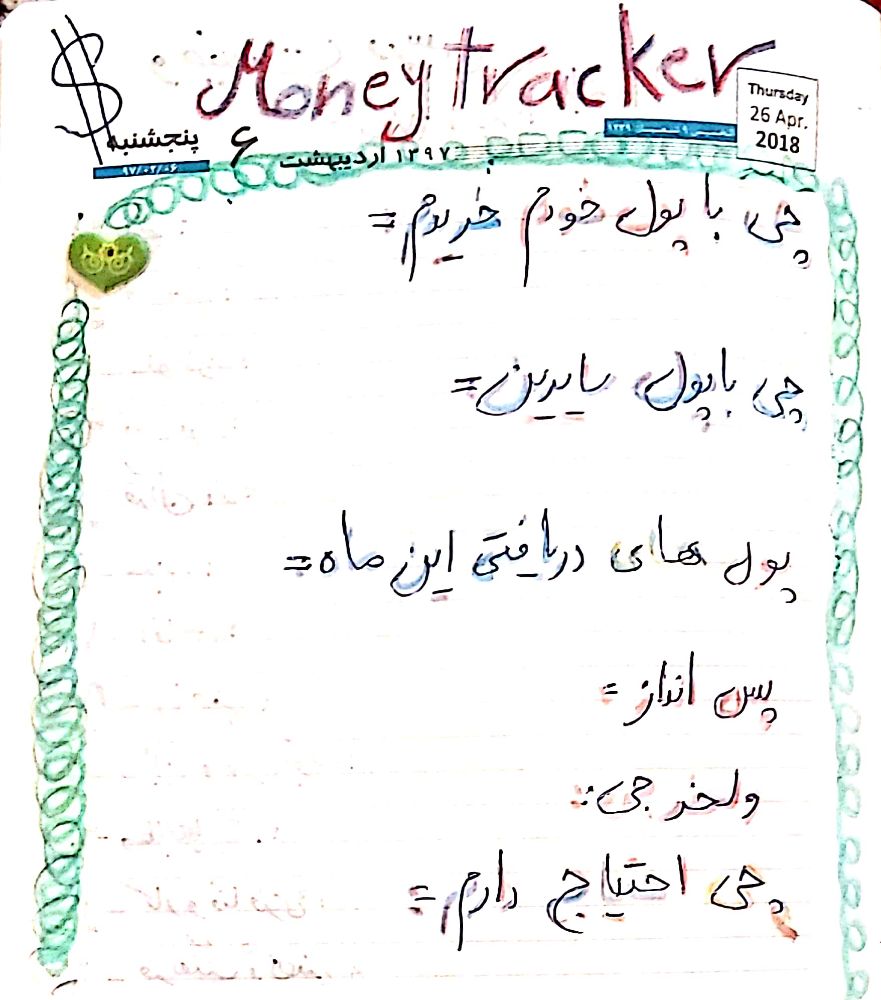 $ Money tracker
Thursday
26 Apr.
2018
پنجشنبه ۶ اردیبهشت ۱۳۹۷
۹۷/۰۲/۰۶
چی با پول خودم خریدم =
چی با پول سایرین =
پول های دریافتی این ماه =
پس انداز =
ولخرجی:
چی احتیاج دارم =